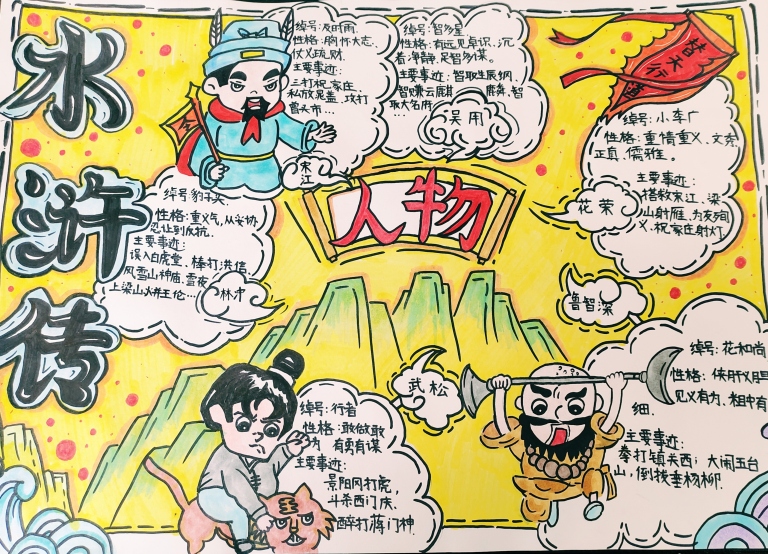 水
浒
传
人物
替天行道
绰号:及时雨
性格:胸怀大志
仗义疏财
主要事迹:
三打祝家庄
私放晁盖,攻打
曾头市...
宋江
绰号:智多星
性格:有远见卓识,沉
着冷静,足智多谋。
主要事迹:智取生辰纲,
智赚
智
取大名府
...
吴用
绰号:小李广
性格:重情重义、文秀
正真、儒雅。
主要事迹:
搭救宋江、梁
山射雁、为友殉
义、祝家庄射灯
花荣
绰号豹子头
性格:重义气,从妥协
忍让到反抗。
主要事迹:
误入白虎堂、棒打洪信,
风雪山神庙、雪夜
上梁山火并王伦...
林冲
鲁智深
绰号:花和尚
性格:侠肝义胆
见义有为、粗中有
细.
主要事迹:
拳打镇关西;大闹五台
山,倒拔垂杨柳.
武松
绰号:行者
性格:敢做敢
为 有勇有谋
主要事迹:
景阳冈打虎,
斗杀西门庆、
醉打蒋门神